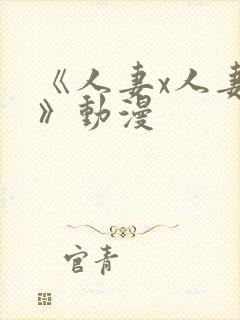 《人妻x人妻
》動漫
官青